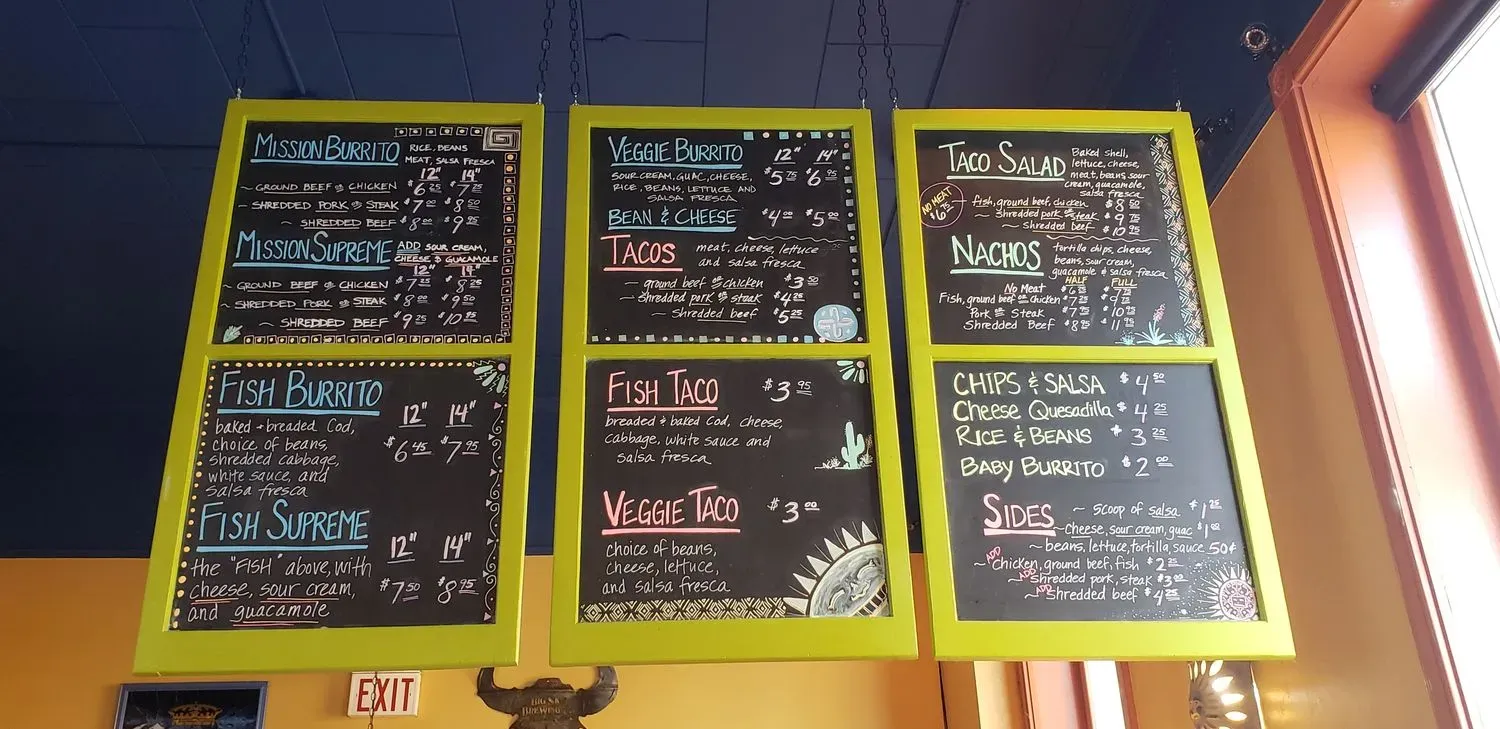 MISSION BURRITO RICE, BEANS
MEAT, SALSA FRESCA
12" 14"
~ GROUND BEEF OR CHICKEN $6 25 $7 25
~ SHREDDED PORK OR STEAK $7 00 $8 50
~ SHREDDED BEEF $8 00 $9 25
MISSION SUPREME ADD SOUR CREAM,
CHEESE & GUACAMOLE
12" 14"
~ GROUND BEEF OR CHICKEN $7 25 $8 25
~ SHREDDED PORK OR STEAK $8 00 $9 50
~ SHREDDED BEEF $9 25 $10 95
FISH BURRITO
12" 14"
baked + breaded Cod,
choice of beans,
$6 45 $7 95
shredded cabbage,
white sauce, and
salsa fresca
FISH SUPREME
12" 14"
the "FISH" above, with
cheese, sour cream,
$7 50 $8 95
and guacamole
VEGGIE BURRITO 12" 14"
SOUR CREAM, GUAC, CHEESE, $5 75 $6 95
RICE, BEANS, LETTUCE AND
SALSA FRESCA
BEAN & CHEESE $4 00 $5 00
TACOS meat, cheese, lettuce
and salsa fresca
~ ground beef OR chicken $3 50
~ shredded pork OR steak $4 25
~ Shredded beef $5 25
FISH TACO $3 95
breaded & baked Cod, cheese,
cabbage, white sauce and
salsa fresca
VEGGIE TACO $3 00
choice of beans,
cheese, lettuce,
and salsa fresca
TACO SALAD Baked shell,
lettuce, cheese,
meat, beans, sour
cream, guacamole,
salsa fresca
NO MEAT
$6 75
fish, ground beef, chicken $8 50
~ shredded pork OR steak $9 75
~ shredded beef $10 95
NACHOS tortilla chips, cheese,
beans, sour cream,
guacamole & salsa fresca
HALF FULL
No Meat $6 25
Fish, ground beef OR chicken $7 25
Pork OR Steak $7 75 $10 95
Shredded Beef $8 95 $11 95
CHIPS & SALSA $4 50
Cheese Quesadilla $4 25
RICE & BEANS $3 25
BABY BURRITO $2 00
SIDES ~ scoop of salsa $1 25
~ cheese, sour cream, guac $1 00
~ beans, lettuce, tortilla, sauce 50¢
~ ADD chicken, ground beef, fish $2 25
~ ADD shredded pork, steak $3 00
~ ADD shredded beef $4 25
EXIT
BIG SKY
BREWING